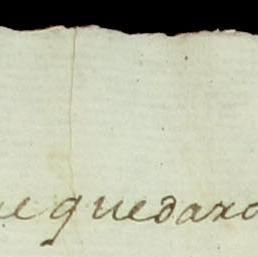 ue quedaro